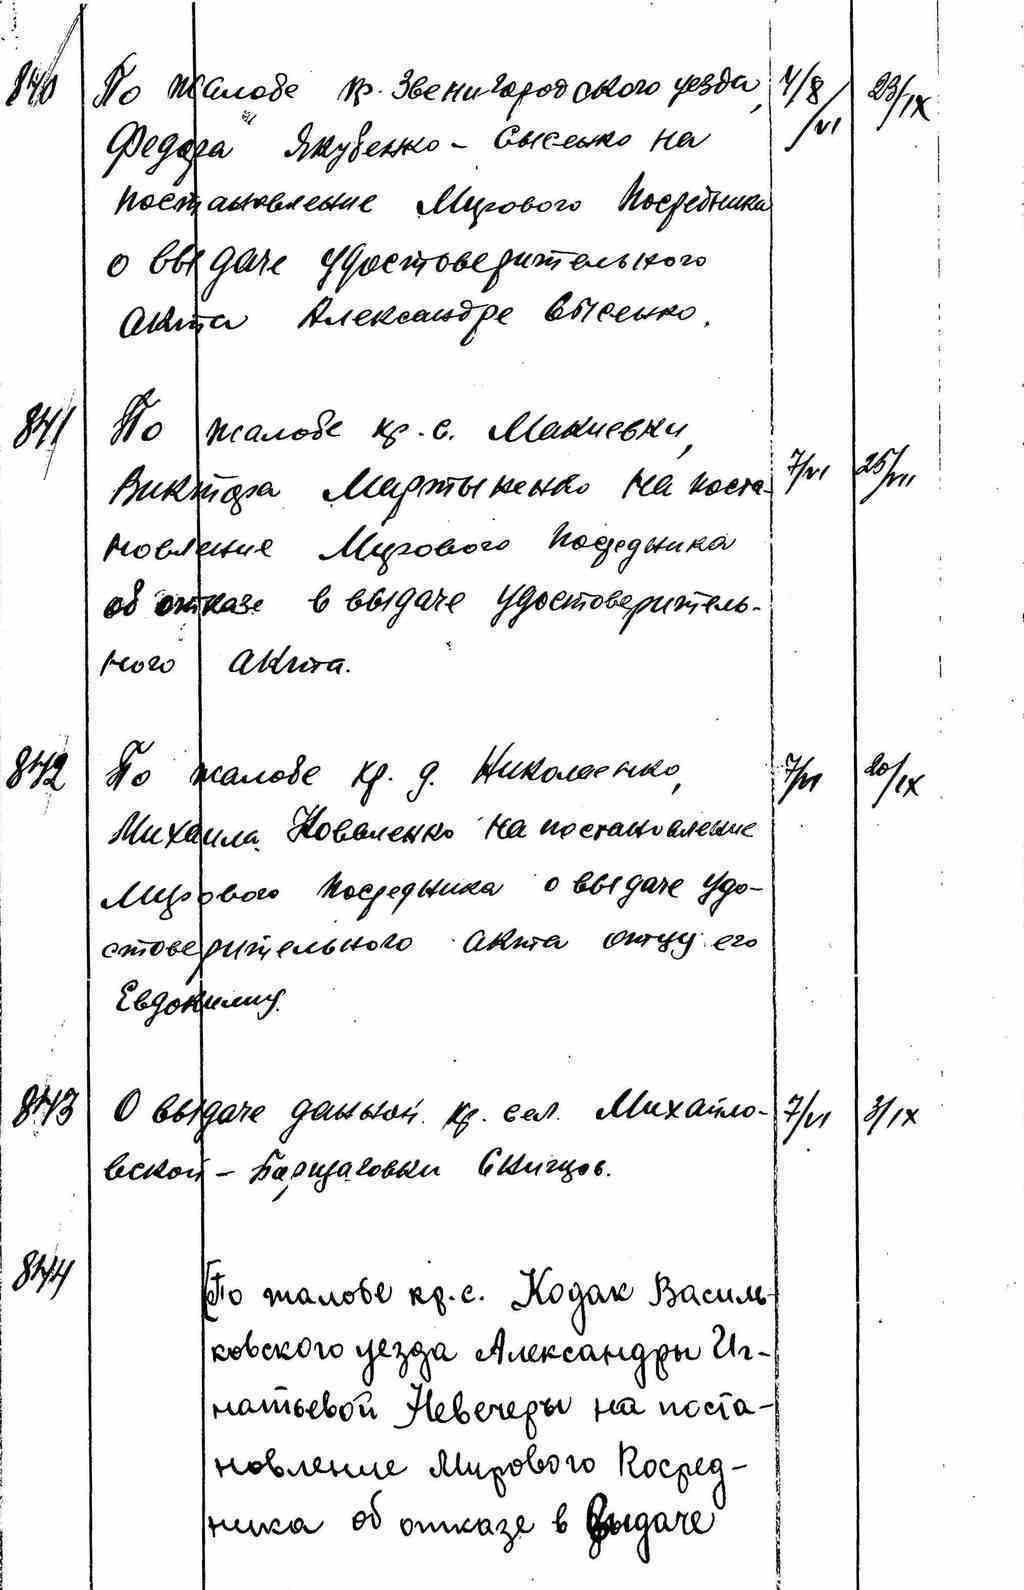 840 По жалобе кр. Звенигородского уезда, 7/8/VI 23/IX
Федора Якубенко - Сысенко на
постановление Мирового Посредника
о выдаче удостоверительного
акта Александре Сысенко.
841 По жалобе кр. с. Макиевки,
Виктора Мартыненко на поста- 7/VI 25/VII
новление Мирового Посредника
об отказе в выдаче удостоверитель-
ного акта.
842 По жалобе кр. д. Николаенко, 7/VI 20/IX
Михаила Коваленко на постановление
Мирового Посредника о выдаче удо-
стоверительного акта отцу его
Евдокиму.
843 О выдаче данной кр. сел. Михайло- 7/VI 3/IX
вской - Борщаговки Скицов.
844 По жалобе кр. с. Кодак Василь-
ковского уезда Александры Иг-
натьевой Невечеры на поста-
новление Мирового Посред-
ника об отказе в выдаче